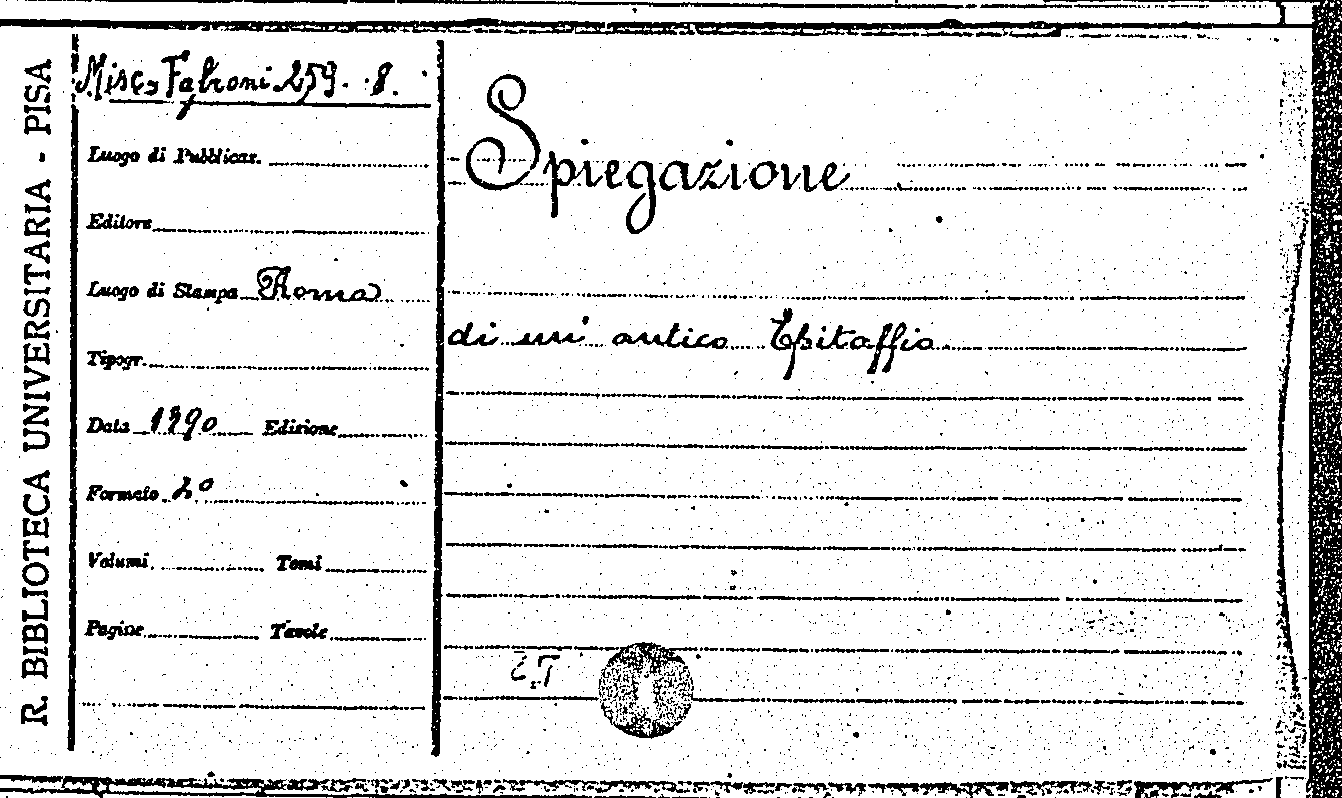 R. BIBLIOTECA UNIVERSITARIA - PISA
Misc. Fabroni 259. 8.
Luogo di Pubblicaz.
Editore
Luogo di Stampa Roma
Tipogr.
Data 1790 Edizione
Formato
Volumi Tomi
Pagine Tavole
Spiegazione
di un' antico Epitaffio